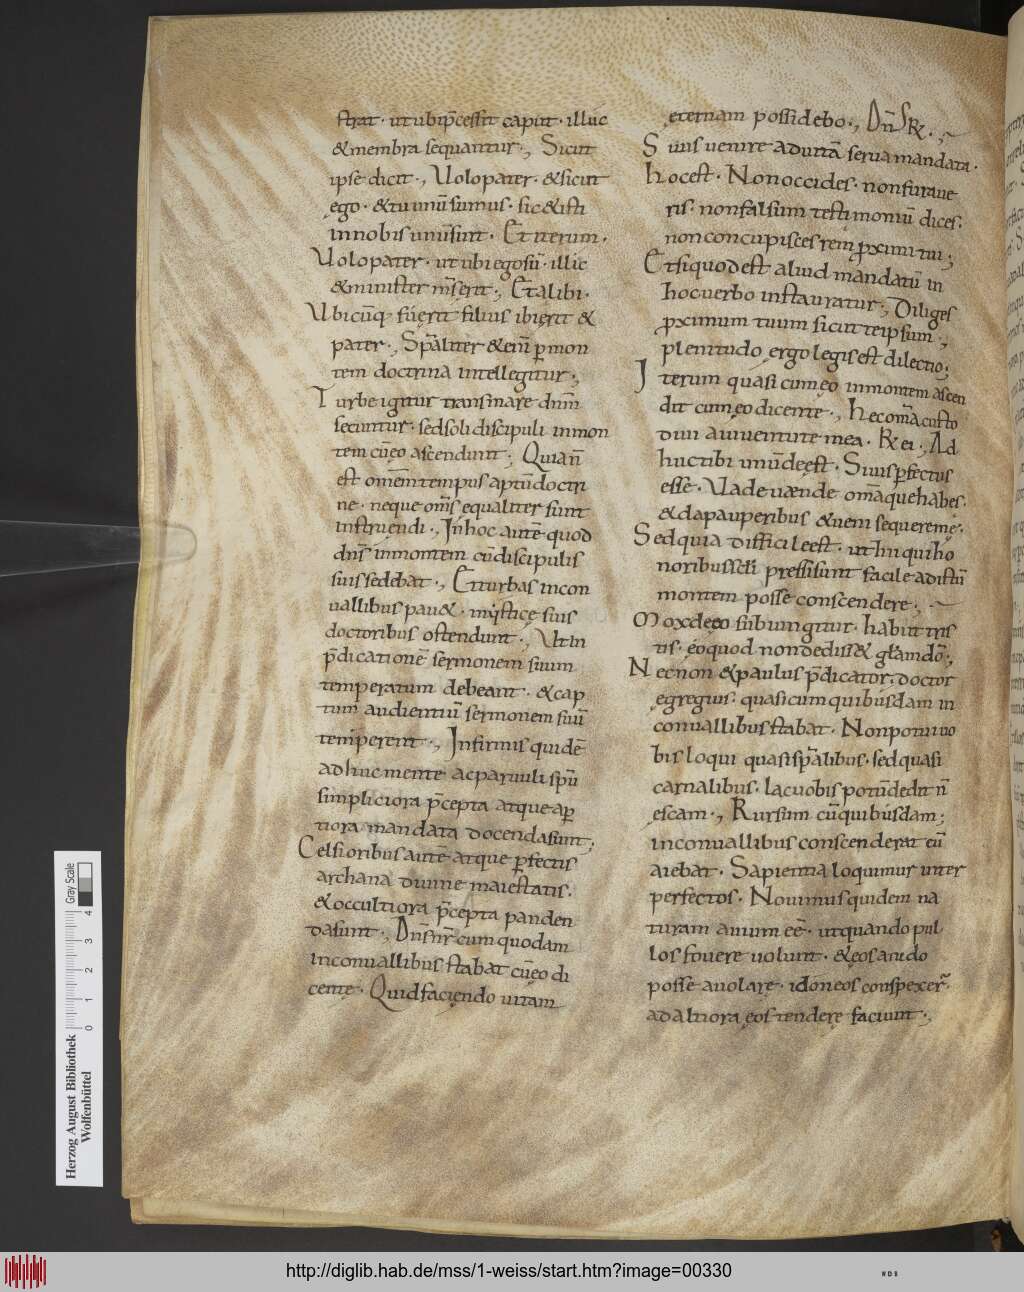 strat · ut ubi p̄cessit caput · illuc
& membra sequantur ·, Sicut
ipse dicit ·, Volo pater · & sicut
ego · & tu unū sumus · sic & isti
in nobis unū sint · Et iterum ·
Volo pater · ut ubi ego sū · illic
& minister m̄s erit ·, Et alibi ·
Ubicūq· fuęrit filius ibi ęrit &
pater ·, Sp̄aliter & eni̅ p̱ mon
tem doctrina intellegitur ·,
Turbe igitur transmare dnm̄
secuntur · sed soli discipuli in mon
tem cū ęo ascendunt ; Quia n̄
est om̄em tempus aptū doctri
ne · neque om̄s equaliter sunt
instruendi ·, In hoc autē quod
dn̄s in montem cū discipulis
suis sedebat ·, Et turbas in con
uallibus pau& · mystice suis
doctoribus ostendunt ·, Ut in
p̄dicationē sermonem suum
temperatum debeant · & cap
tum audientiū sermonem suū
temperent ·, Infirmis quidē
adhuc mente ac paruuli spū
simpliciora p̄cepta atque ap̱
tiora mandata docenda sunt ;
Celsioribus autē atque p̱fectis
archana diuine maiestatis ·
& occultiora p̄cepta panden
da sunt ·, Dn̄s nr̄ cum quodam
in conuallibus stabat cū ęo di
cente · Quid facięndo uitam
ęternam possidebo ·, Dn̄s R̵ ·,
Si uis uenire ad uitā serua mandata ·
hoc est · Non occides · non furaue
ris · non falsum testimoniū dices ·
non concupisces rem p̱ximi tui ;
Et si quod est aliud mandatū in
hoc uerbo instauratur ·, Diliges
p̱ximum tuum sicut te ipsum ·,
plenitudo ęrgo legis est dilectio ;
Iterum quasi cum ęo in montem ascen
dit cum ęo dicente ·, hec om̄a custo
diui a iuuentute mea · R̵ ei ·, Ad
huc tibi unū deest · Si uis p̱fectus
esse · Vade uænde om̄a que habes ·
& da pauperibus & ueni sequere me ·
Sed quia difficile est · ut hi qui ho
noribus scl̄i pressi sunt facile ad istū
montem posse conscendere ·,
Mox de eo subiungitur · habiit tris
tis · eo quod non dedisī & gl̄am dō ·,
Nec non & paulus p̄dicator · doctor
egregius · quasi cum quibusdam in
conuallibus stabat · Non potui uo
bis loqui quasi sp̄alibus · sed quasi
carnalibus · lac uobis potū dedi n̄
escam ·, Rursum cū quibusdam ;
in conuallibus conscenderat cū
aiebat · Sapientia loquimur inter
perfectos · Nouimus quidem na
turam auium eē · ut quando pul
los fouere uolunt · & eos a nido
posse auolare · idoneos conspexer̄
ad altiora ęos tendere faciunt ·,
Herzog August Bibliothek
Wolfenbüttel
0 1 2 3 4
Gray Scale
http://diglib.hab.de/mss/1-weiss/start.htm?image=00330